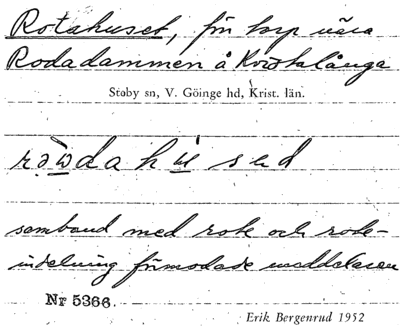 Rotahuset, fin torp nära
Rodadammen å Korsholånga
Stoby sn, V. Göinge hd, Krist. län.
rəωdahʉsəd
samband med rote och rote-
indelning förmodade meddelaren
Nr 5366.
Erik Bergenrud 1952